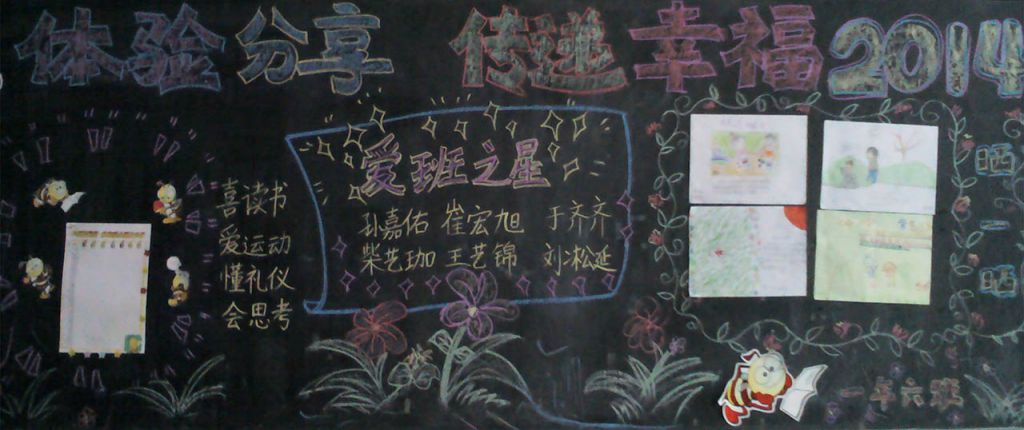 体验分享 传递幸福2014
喜读书
爱运动
懂礼仪
会思考
爱班之星
孙嘉佑 崔宏旭 于齐齐
柴艺珈 王艺锦 刘凇延
晒一晒
一年六班